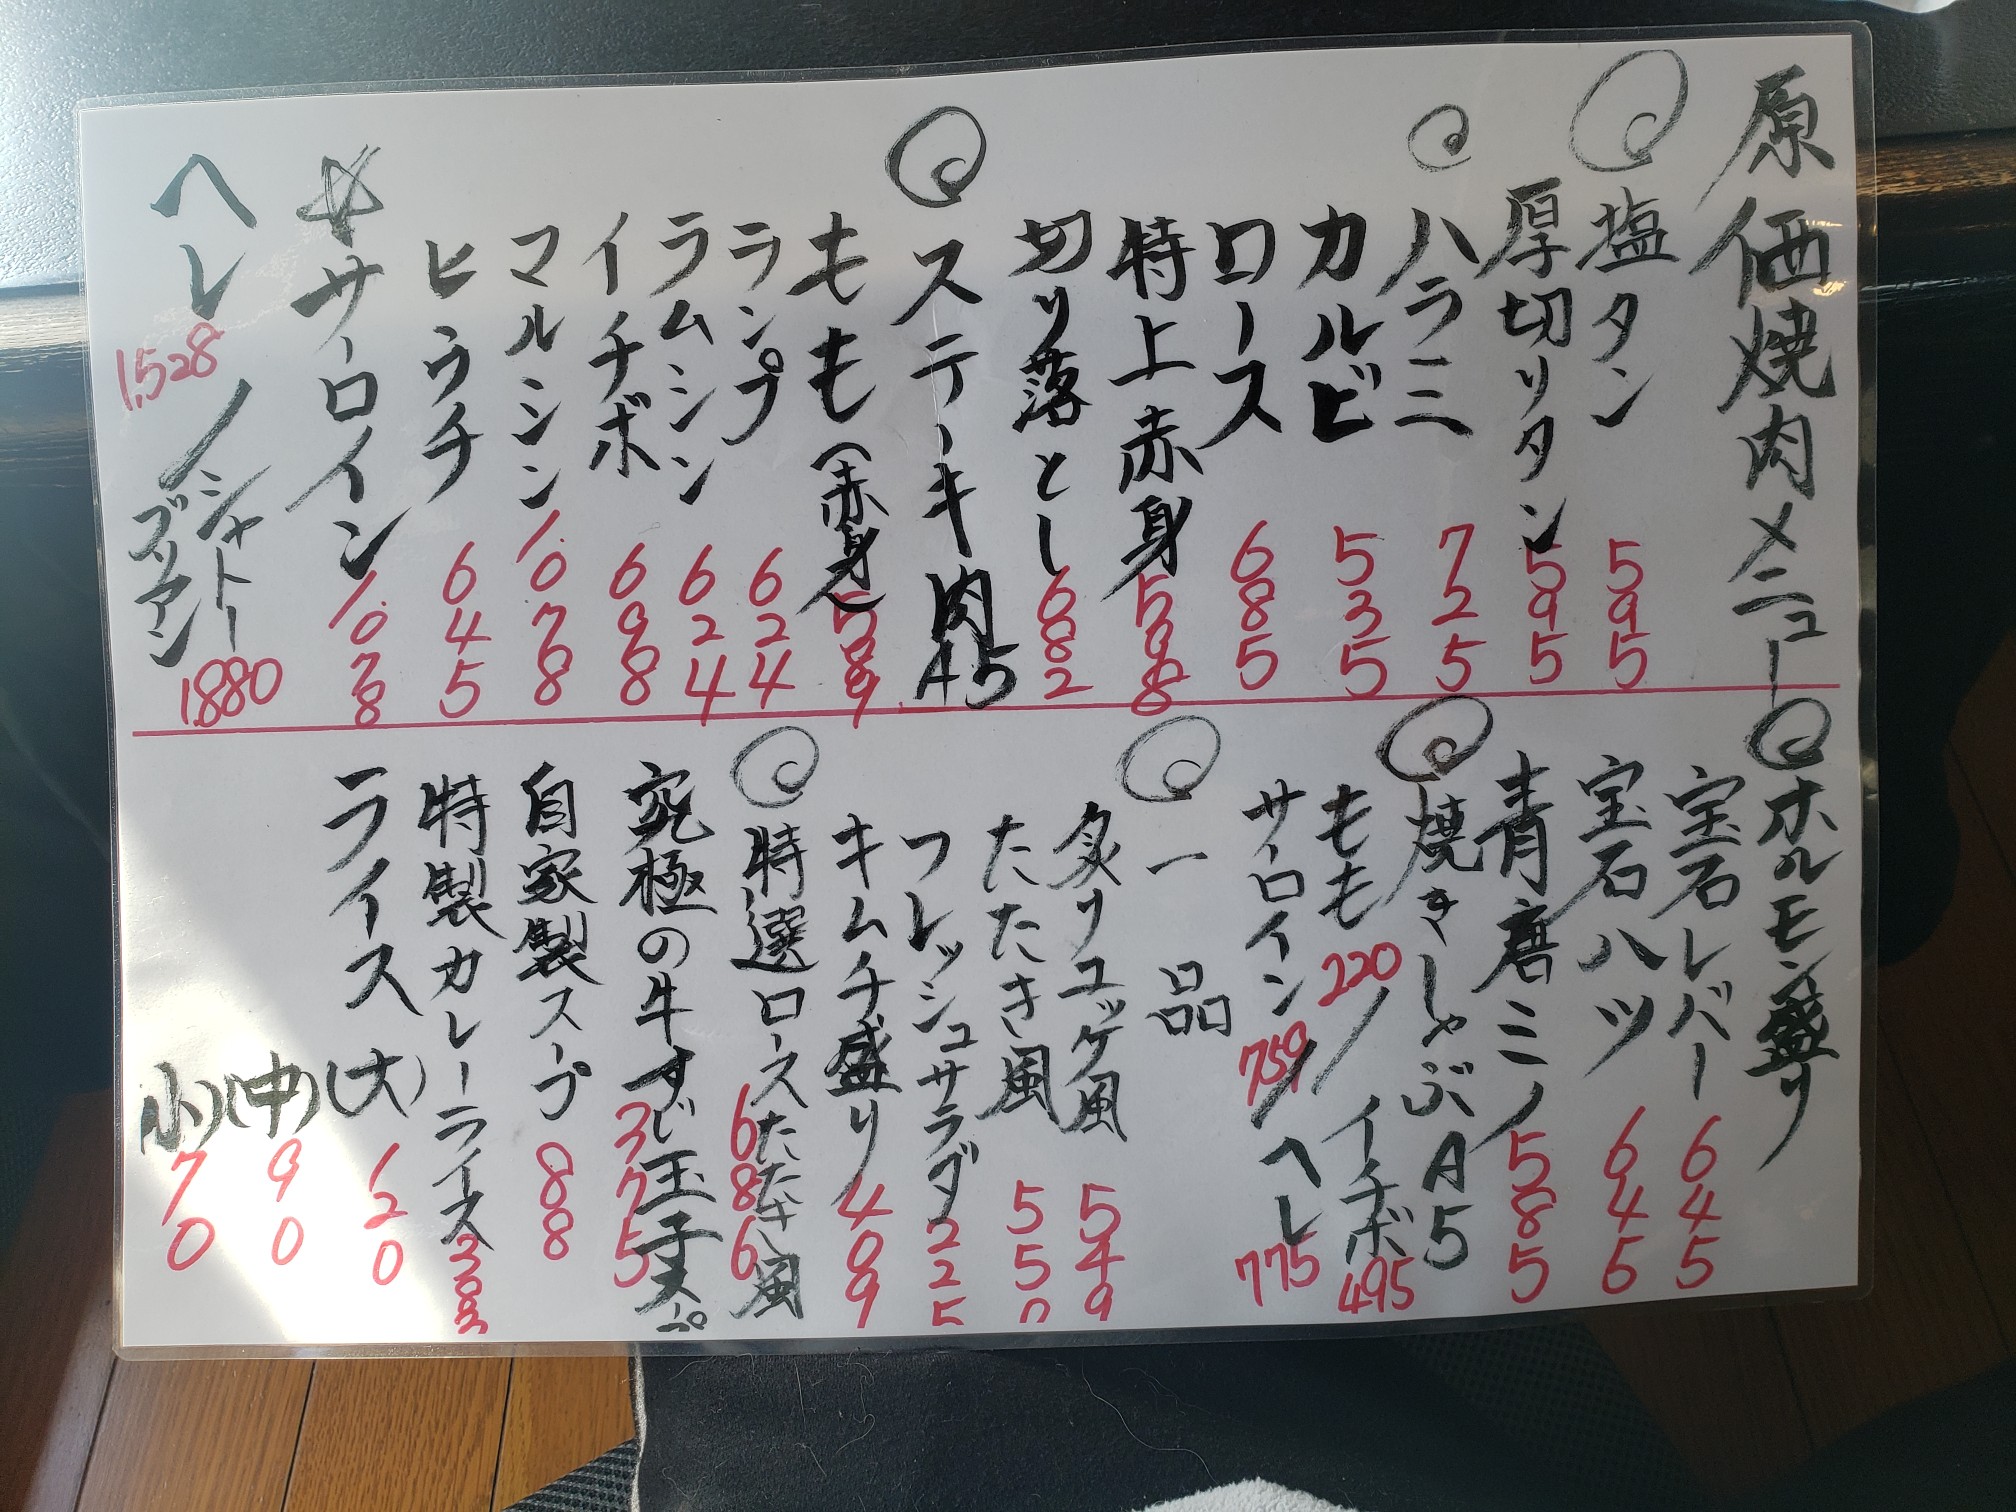 原価焼肉メニュー
塩タン 595
厚切りタン 595
ハラミ 725
カルビ 535
ロース 685
特上赤身 598
切り落とし 682
ステーキ肉A5
もも(赤身) 589
ランプ 624
ラムシン 624
イチボ 698
マルシン 1.078
ヒウチ 645
☆サーロイン 1.078
ヘレ 1.528/シャトーブリアン 1.880
ホルモン盛り
宝石レバー 645
宝石ハツ 645
青唐ミノ 585
焼きしゃぶA5
もも 220/イチボ 495
サーロイン 759/ヘレ 775
一品
炙りユッケ風 549
たたき風 550
フレッシュサラダ 225
キムチ盛り 409
特選ロースたたき風 686
究極の牛すじ玉子スープ 375
自家製スープ 88
特製カレーライス 308
ライス(大) 120
(中) 90
(小) 70